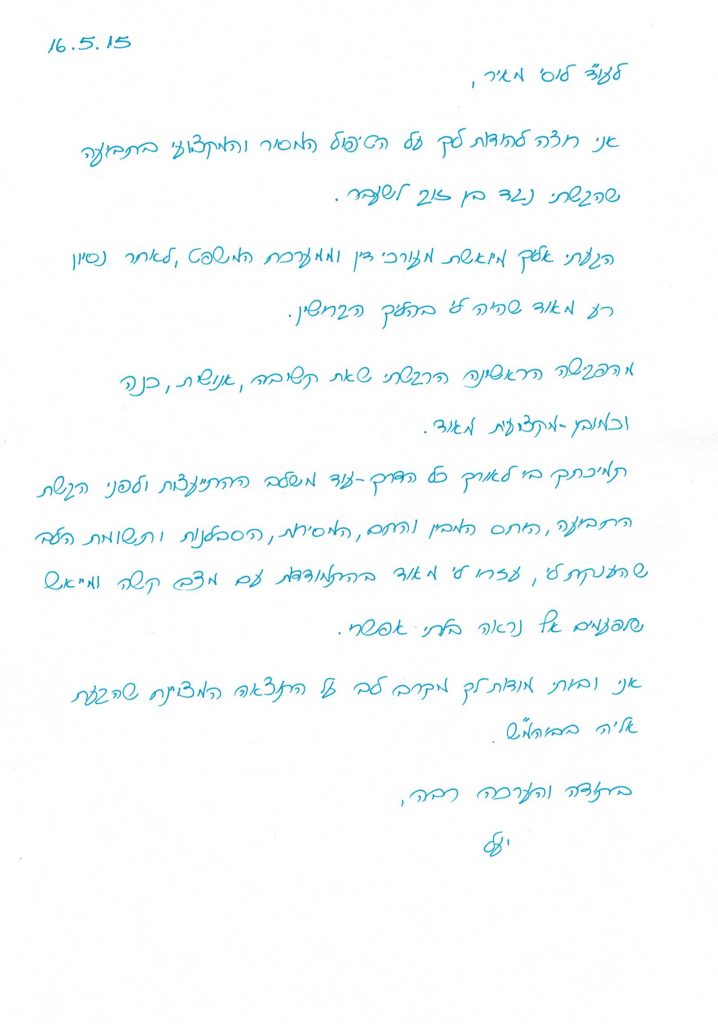 16.5.15
לעו"ד לוסי מאיר,
אני רוצה להודות לך על הטיפול המסור והמקצועי בתביעה
שהגשתי נגד בן זוגי לשעבר.
הגעתי אליך מיואשת מעורכי דין וממערכת המשפט, לאחר נסיון
רע מאוד שהיה לי בהליך הגרושין.
מהפגישה הראשונה הרגשתי שאת קשיבה, אנושית, כנה
וכמובן - מקצועית מאוד.
תמיכתך בי לאורך כל הדרך - עוד משלב ההתייעצות ולפני הגשת
התביעה, היחס המבין והחם, המסירות, הסבלנות ותשומת הלב
שהענקת לי, עזרו לי מאוד בהתמודדות עם מצב קשה ומייאש
שלפעמים אף נראה בלתי אפשרי.
אני וביתי מודות לך מקרב לב על התוצאה המצוינת שהגעת
אליה בביהמ"ש.
בתודה והערכה רבה,
יעל